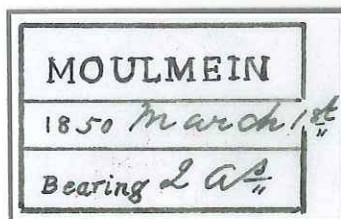 MOULMEIN
1850 March 1st
Bearing 2 As